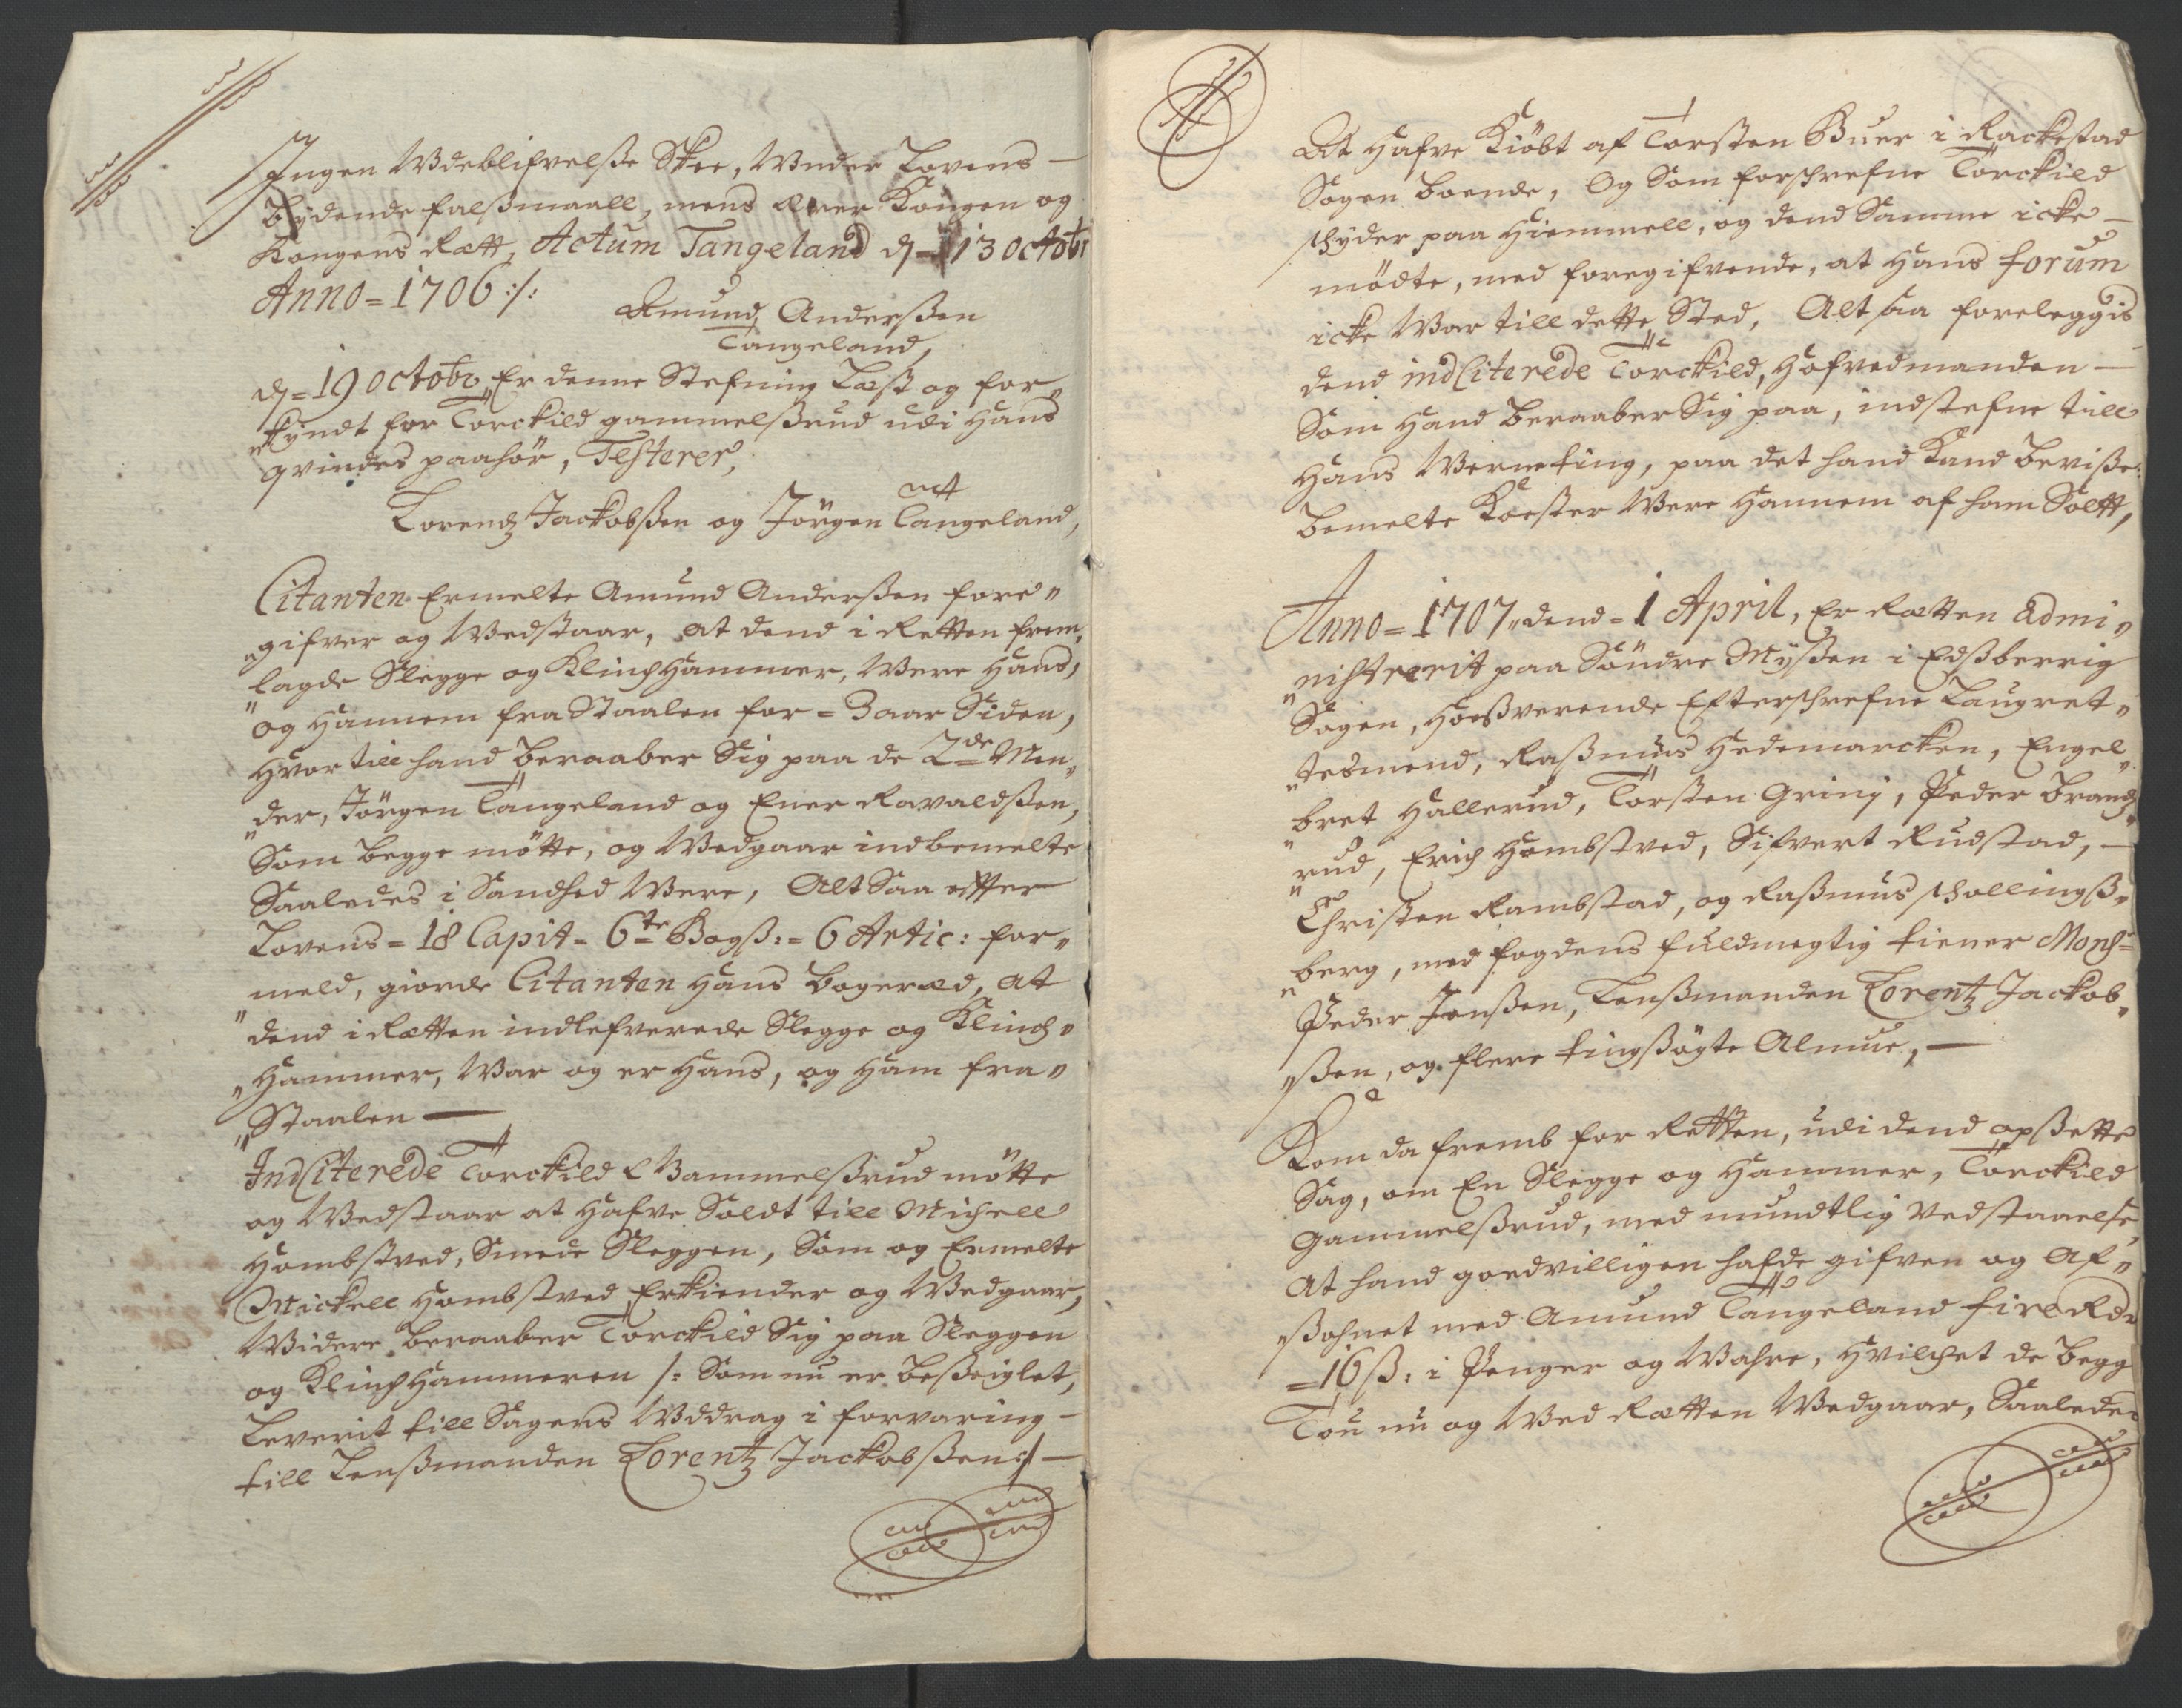 Ingen Udeblifvelsse Skee, Under Lovens —
bydende falssmaall, mens ærer Kongen og
Kongens Rætt, Actum Tangeland d = 13 Octobr
Anno = 1706 :/:
Amund Anderssen
Tangeland,
d = 19 Octobr, Er denne Stefning Læst og for„
„kyndt for Torckild gammelssrud udi Hans
qvindes paahör, Testerer,
Lorendz Jackobssen og Jörgen Tangeland,
Citanten Ermelte Amund Anderssen fore„
„gifver og Vedstaar, at dend i Retten frem„
„lagde Slegge og Klinchhammer, Were Hans,
og Hannem fra Staalen for = 3 aar Siden,
Hvor till hand beraaber Sig paa de 2de Men„
„der, Jörgen Tangeland og Ener Ravaldssen,
Som begge mötte, og Vedgaar indbemelte
Saaledes i Sandhed Were, Alt Saa effter
Lovens = 18 Capit = 6te Bogss := 6 Artic: for„
„meld, giorde Citanten Hans bogeræd, at
dend i Rætten indlefverede Slegge og Klinch„
„Hammer, War og er Hans, og Ham fra„
„Staalen —
IndCiterede Torckild Gammelssrud mötte
og Vedstaar at Hafve Soldt till Michell
Hombstved, Smede Sleggen, Som og Ermelte
Mickell Hombstved Erkiender og Vedgaar,
Widere beraaber Torckild Sig paa Sleggen
og Klinchhammeren /: Som nu er besseiglet,
Leverit till Sagens Uddrag i forvaring —
till Lenssmanden Lorentz Jackobssen :/ —
At Hafve Kiöbt af Torsten Buer i Rackestad
Sogen boende, Og Som forschrefne Torckild
schyder paa Hiemmell, og dend Samme icke —
mödte, med foregifvende, at Hans forum
icke War till dette Sted, Alt saa foreleggis
dend indCiterede Torckild, Hofvedmanden —
Som Hand beraaber Sig paa, indstefne till
Hans Werneting, paa det hand Kand bevisse:
bemelte Koester Were Hannem af ham Soltt,
Anno = 1707 „ dend = 1 April, Er Rætten admi„
„nistrerit paa Söndre Myssen i Edssberrig
Sogen, Hossverende Effterschrefne Laugret„
„tesmend, Rassmus Hedemarcken, Engel„
„bret Hallerud, Torsten Griny, Peder brandz„
„rud, Erich Hombstved, Sifvert Rudstad, —
Christen Rambstad, og Rassmus schollingss„
„berg, med fogdens fuldmegtig tiener Monsr
Peder Jenssen, Lenssmanden Lorentz Jackob„
„ssen, og flere tingssögte Almue, —
Kom da fremb for Retten, udi dend opssette
Sag, om En Slegge og Hammer, Torckild
Gammelssrud, med mundtlig Vedstaaelse,
at hand goedvilligen hafde gifven og Af„
„ssohnet med Amund Tangeland fire Rdr
= 16 ss: i Penger og Wahre, Hvilchet de begg
Tou nu og Ved Rætten Vedgaar, Saaledes